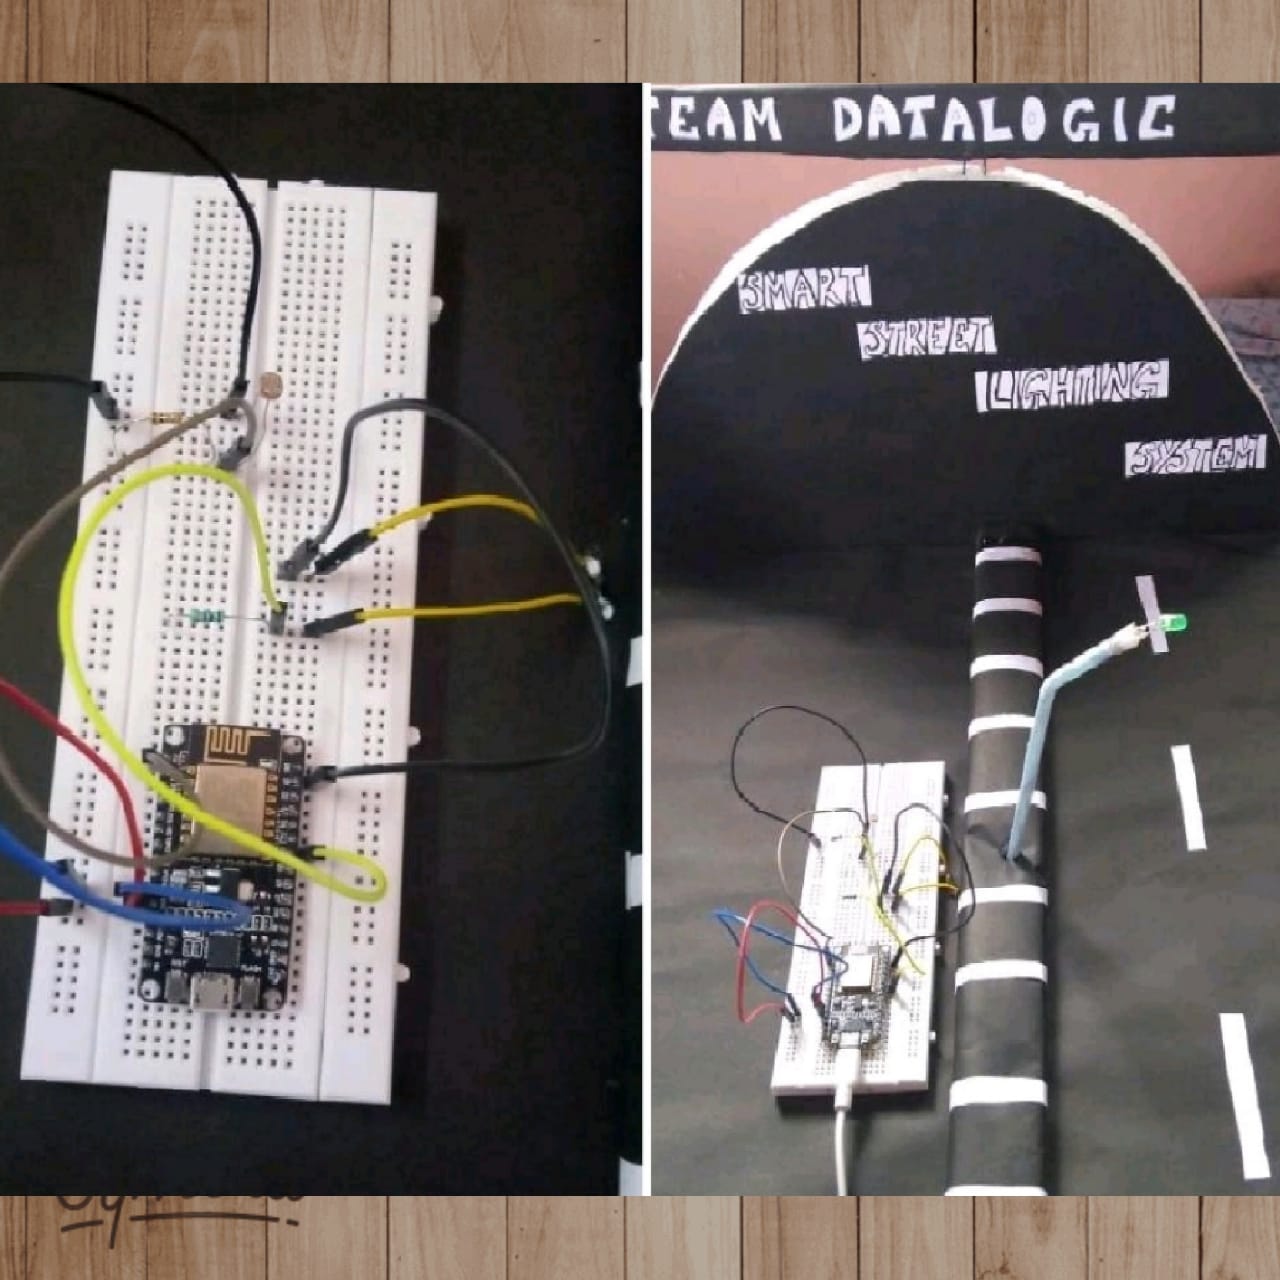 TEAM DATALOGIC
SMART
STREET
LIGHTING
SYSTEM